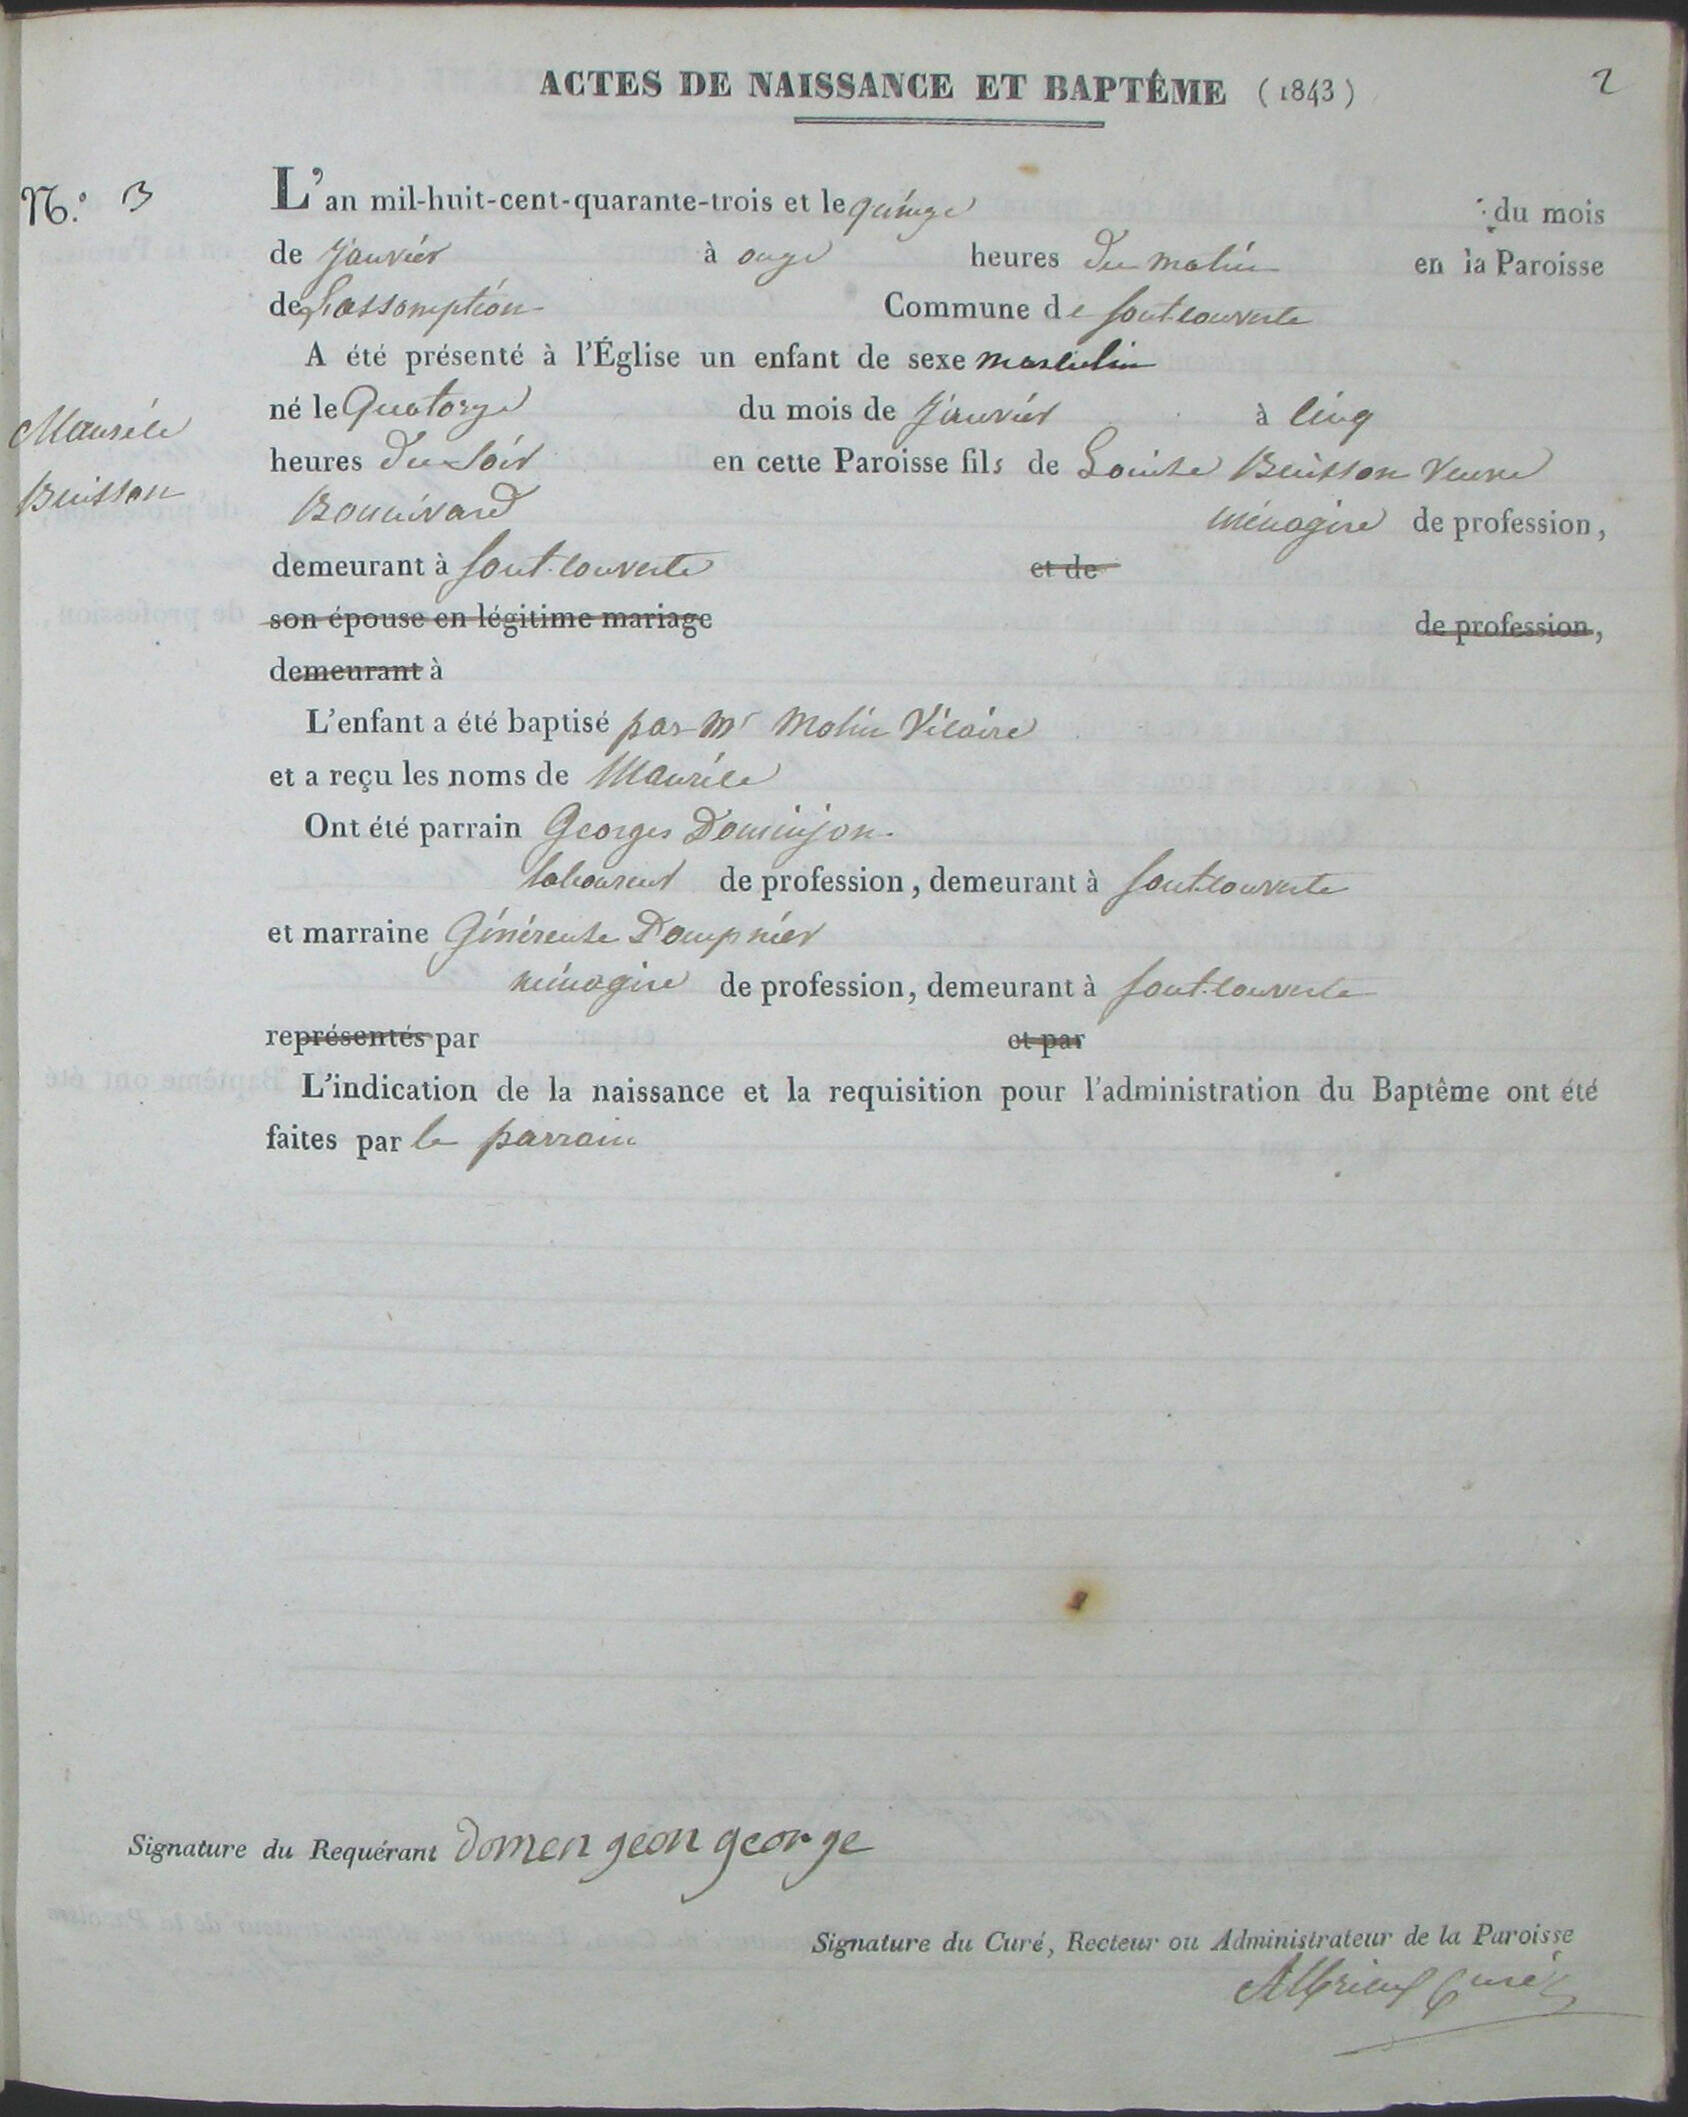 ACTES DE NAISSANCE ET BAPTÊME (1843)
2
N.o 3
L'an mil-huit-cent-quarante-trois et le quinze du mois
de janvier à onze heures du matin en la Paroisse
de Lassomption Commune de fontcouverte
A été présenté à l'Église un enfant de sexe masculin
né le Quatorze du mois de janvier à cinq
Maurile
Buisson
heures du soir en cette Paroisse fils de Louise Buisson veuve
Bonnivard ménagère de profession,
demeurant à fontcouverte et de
son épouse en légitime mariage de profession,
demeurant à
L'enfant a été baptisé par Mr Molin Vicaire
et a reçu les noms de Maurile
Ont été parrain Georges Dominjon
laboureur de profession, demeurant à fontcouverte
et marraine Généreuse Dompnier
ménagère de profession, demeurant à fontcouverte
représentés par et par
L'indication de la naissance et la requisition pour l'administration du Baptême ont été
faites par le parrain
Signature du Requérant domengeon george
Signature du Curé, Recteur ou Administrateur de la Paroisse
curé